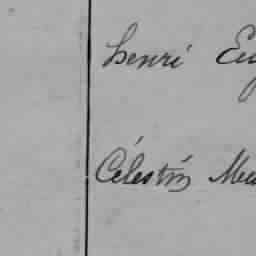 Henri Eug
Célestin Meu